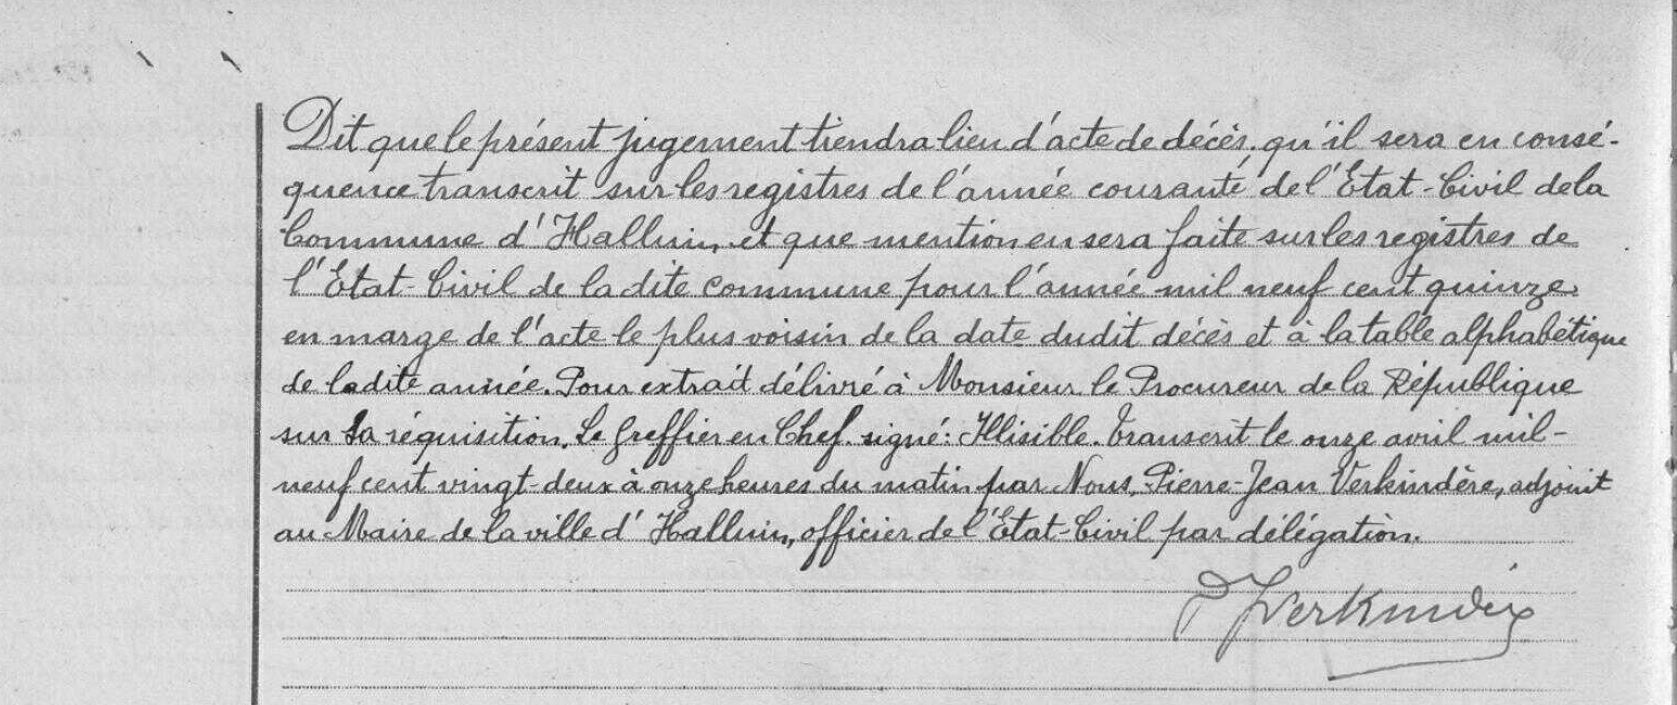 Dit que le présent jugement tiendra lieu d'acte de décès, qu'il sera en consé-
quence transcrit sur les registres de l'année courante, de l'Etat-Civil de la
Commune d'Halluin, et que mention en sera faite sur les registres de
l'Etat-Civil de la dite commune pour l'année mil neuf cent quinze
en marge de l'acte le plus voisin de la date dudit décès et à la table alphabétique
de ladite année. Pour extrait délivré à Monsieur le Procureur de la République
sur sa réquisition. Le Greffier en Chef. signé: Illisible. Transcrit le onze avril mil-
neuf cent vingt-deux à onze heures du matin par Nous, Pierre-Jean Verkindère, adjoint
au Maire de la ville d'Halluin, officier de l'Etat-Civil par délégation.
P J Verkindère